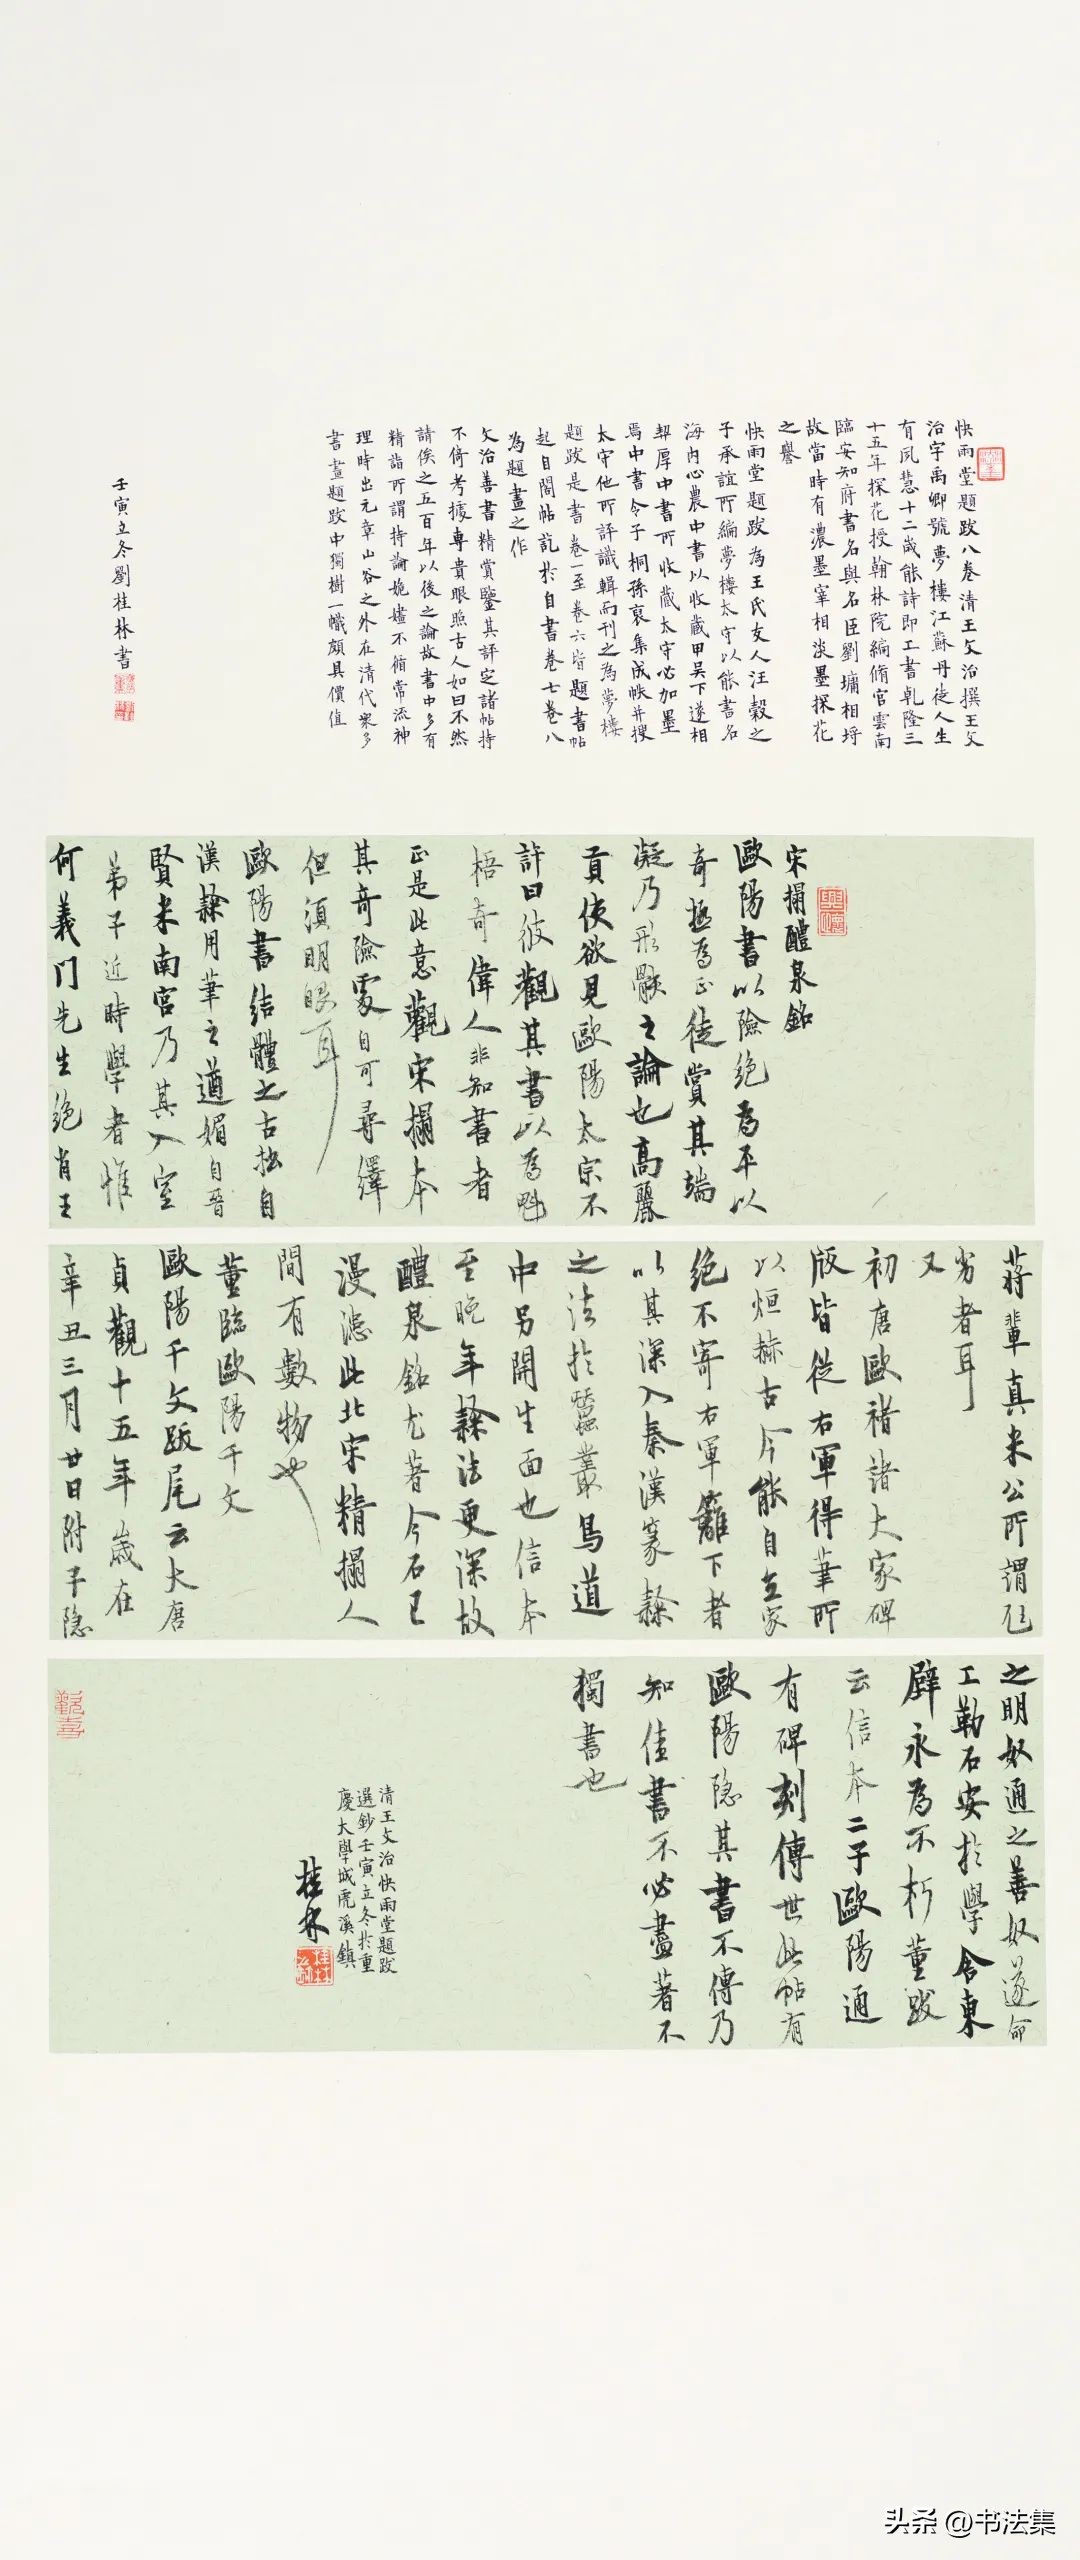 快雨堂題跋八卷清王文治撰王文
治字禹卿號夢樓江蘇丹徒人生
有夙慧十二歲能詩即工書乾隆三
十五年探花授翰林院編脩官雲南
臨安知府書名與名臣劉墉相埒
故當時有濃墨宰相淡墨探花
之譽
快雨堂題跋為王氏友人汪穀之
子承誼所編夢樓太守以能書名
海內心農中書以收藏甲吳下遂相
契厚中書所收藏太守必加墨
焉中書令子桐孫裒集成帙并搜
太守他所評識輯而刊之為夢樓
題跋是書卷一至卷六皆題書帖
起自閣帖訖於自書卷七卷八
為題畫之作
文治善書精賞鑒其評定諸帖持
不倚考據專貴眼照古人如曰不然
請俟之五百年以後之論故書中多有
精詣所謂持論媕㜝不脩常流神
理時出元章山谷之外在清代眾多
書畫題跋中獨樹一幟頗具價值
壬寅立冬劉桂林書
宋搨醴泉銘
歐陽書以險絕為平以
奇極為正徒賞其端
凝乃形骸之論也高麗
貢使欲見歐陽太宗不
許曰彼觀其書以為魁
梧奇偉人非知書者
正是此意觀宋搨本
其奇險處自可尋繹
但須明眼耳
歐陽書結體之古拙自
漢隸用筆之遒媚自晉
賢米南宮乃其入室
弟子近時學者惟
何義門先生絕肖王
蔣輩真米公所謂
劣者耳
又
初唐歐褚諸大家碑
版皆從右軍得筆所
以烜赫古今能自立家
絕不寄右軍籬下者
以其深入秦漢篆隸
之法於蠶叢鳥道
中另開生面也信本
至晚年隸法更深故
醴泉銘尤著今石已
漫漶此北宋精搨人
間有數物也
董臨歐陽千文
歐陽千文跋尾云大唐
貞觀十五年歲在
辛丑三月廿日附子隱
之明奴通之善奴遂命
工勒石安於學舍東
壁永為不朽董跋
云信本二子歐陽通
有碑刻傳世此帖有
歐陽隱其書不傳乃
知佳書不必盡著不
獨書也
清王文治快雨堂題跋
選鈔壬寅立冬於重
慶大學城虎溪鎮
桂林
頭条 @书法集